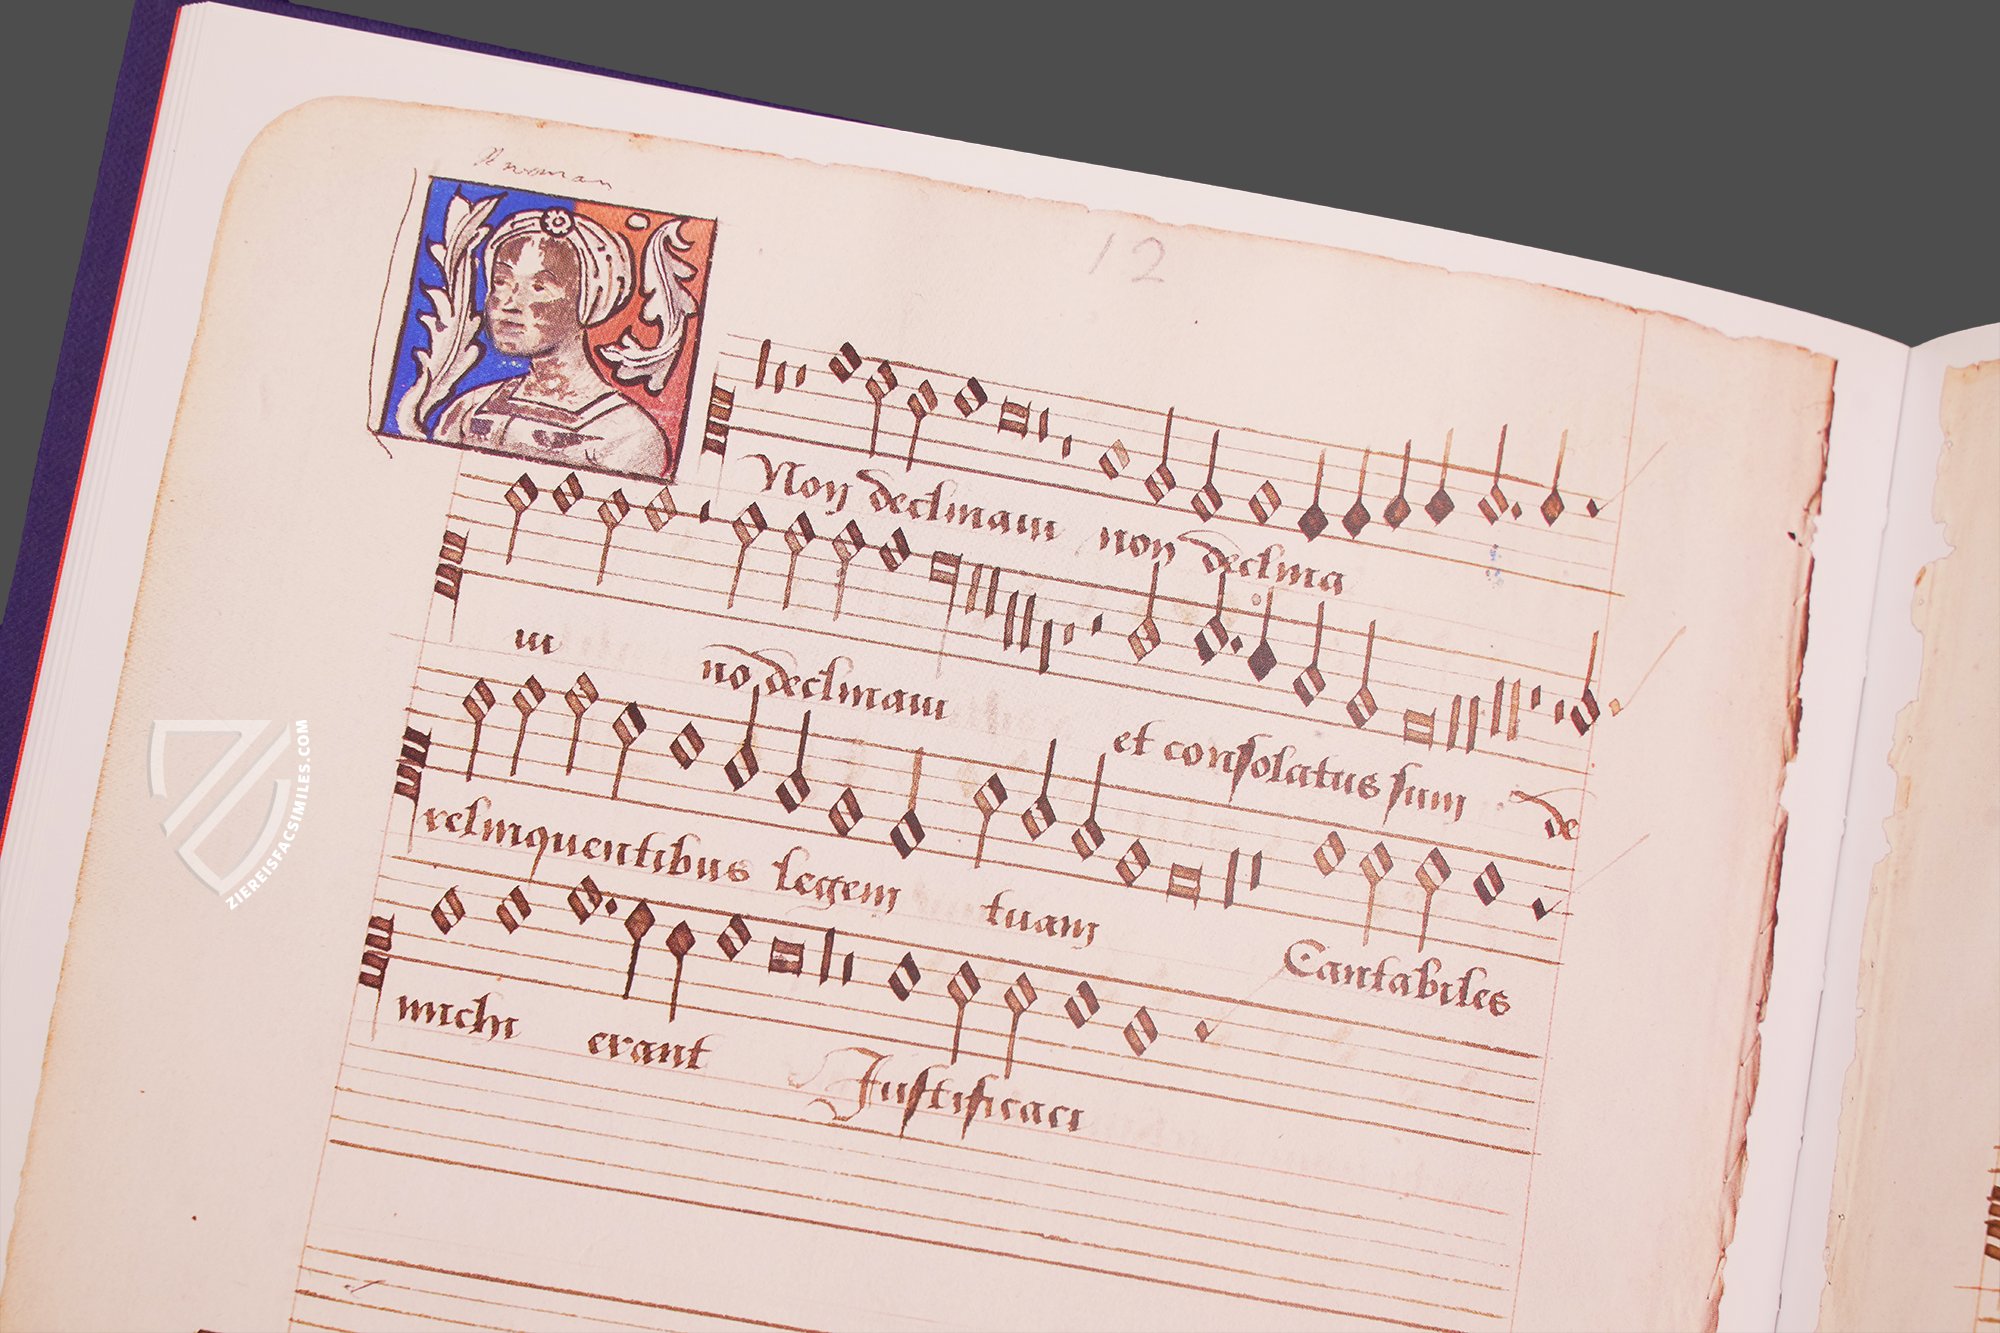 A woman
12
Non declinam non declina
ui
no declinaui
et consolatus sum de
relinquentibus legem tuam
Cantabiles
michi erant Justificaci
ZIEREISFACSIMILES.COM